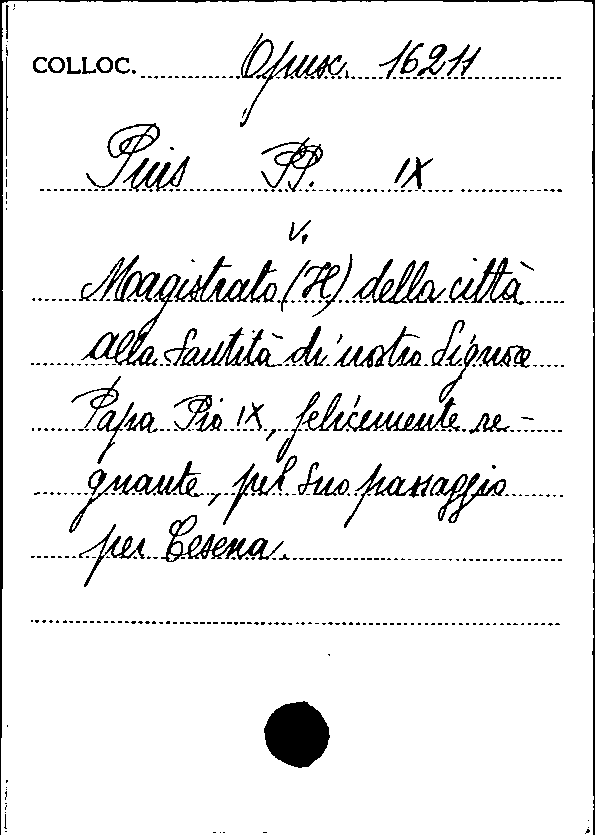 COLLOC. Opusc. 16211
Pius PP. IX
v.
Magistrato (Il) della città
alla Santità di nostro Signore
Papa Pio IX, felicemente re-
gnante, pel suo passaggio
per Cesena.